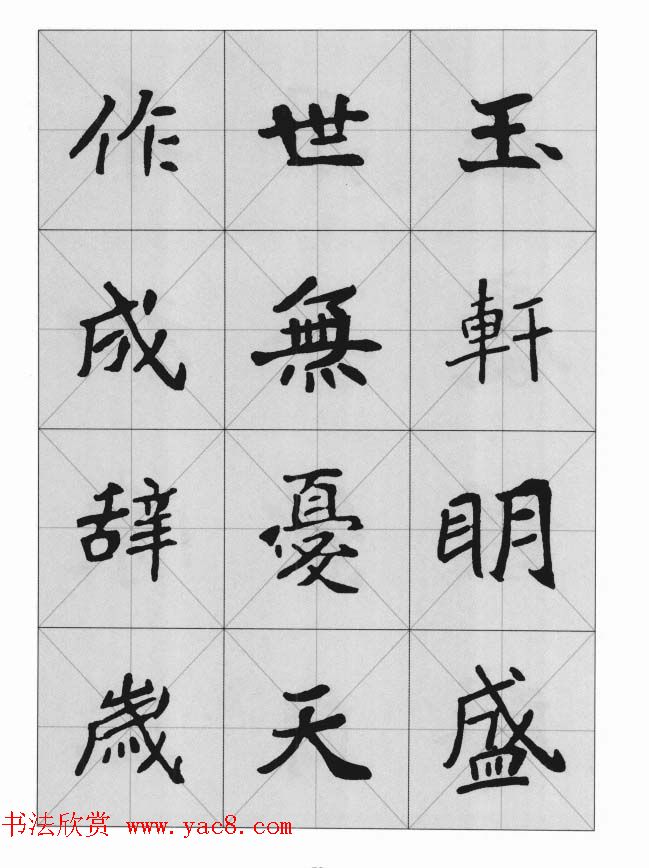 玉軒明盛
世無憂天
作成辞歳
书法欣赏 www.yac8.com